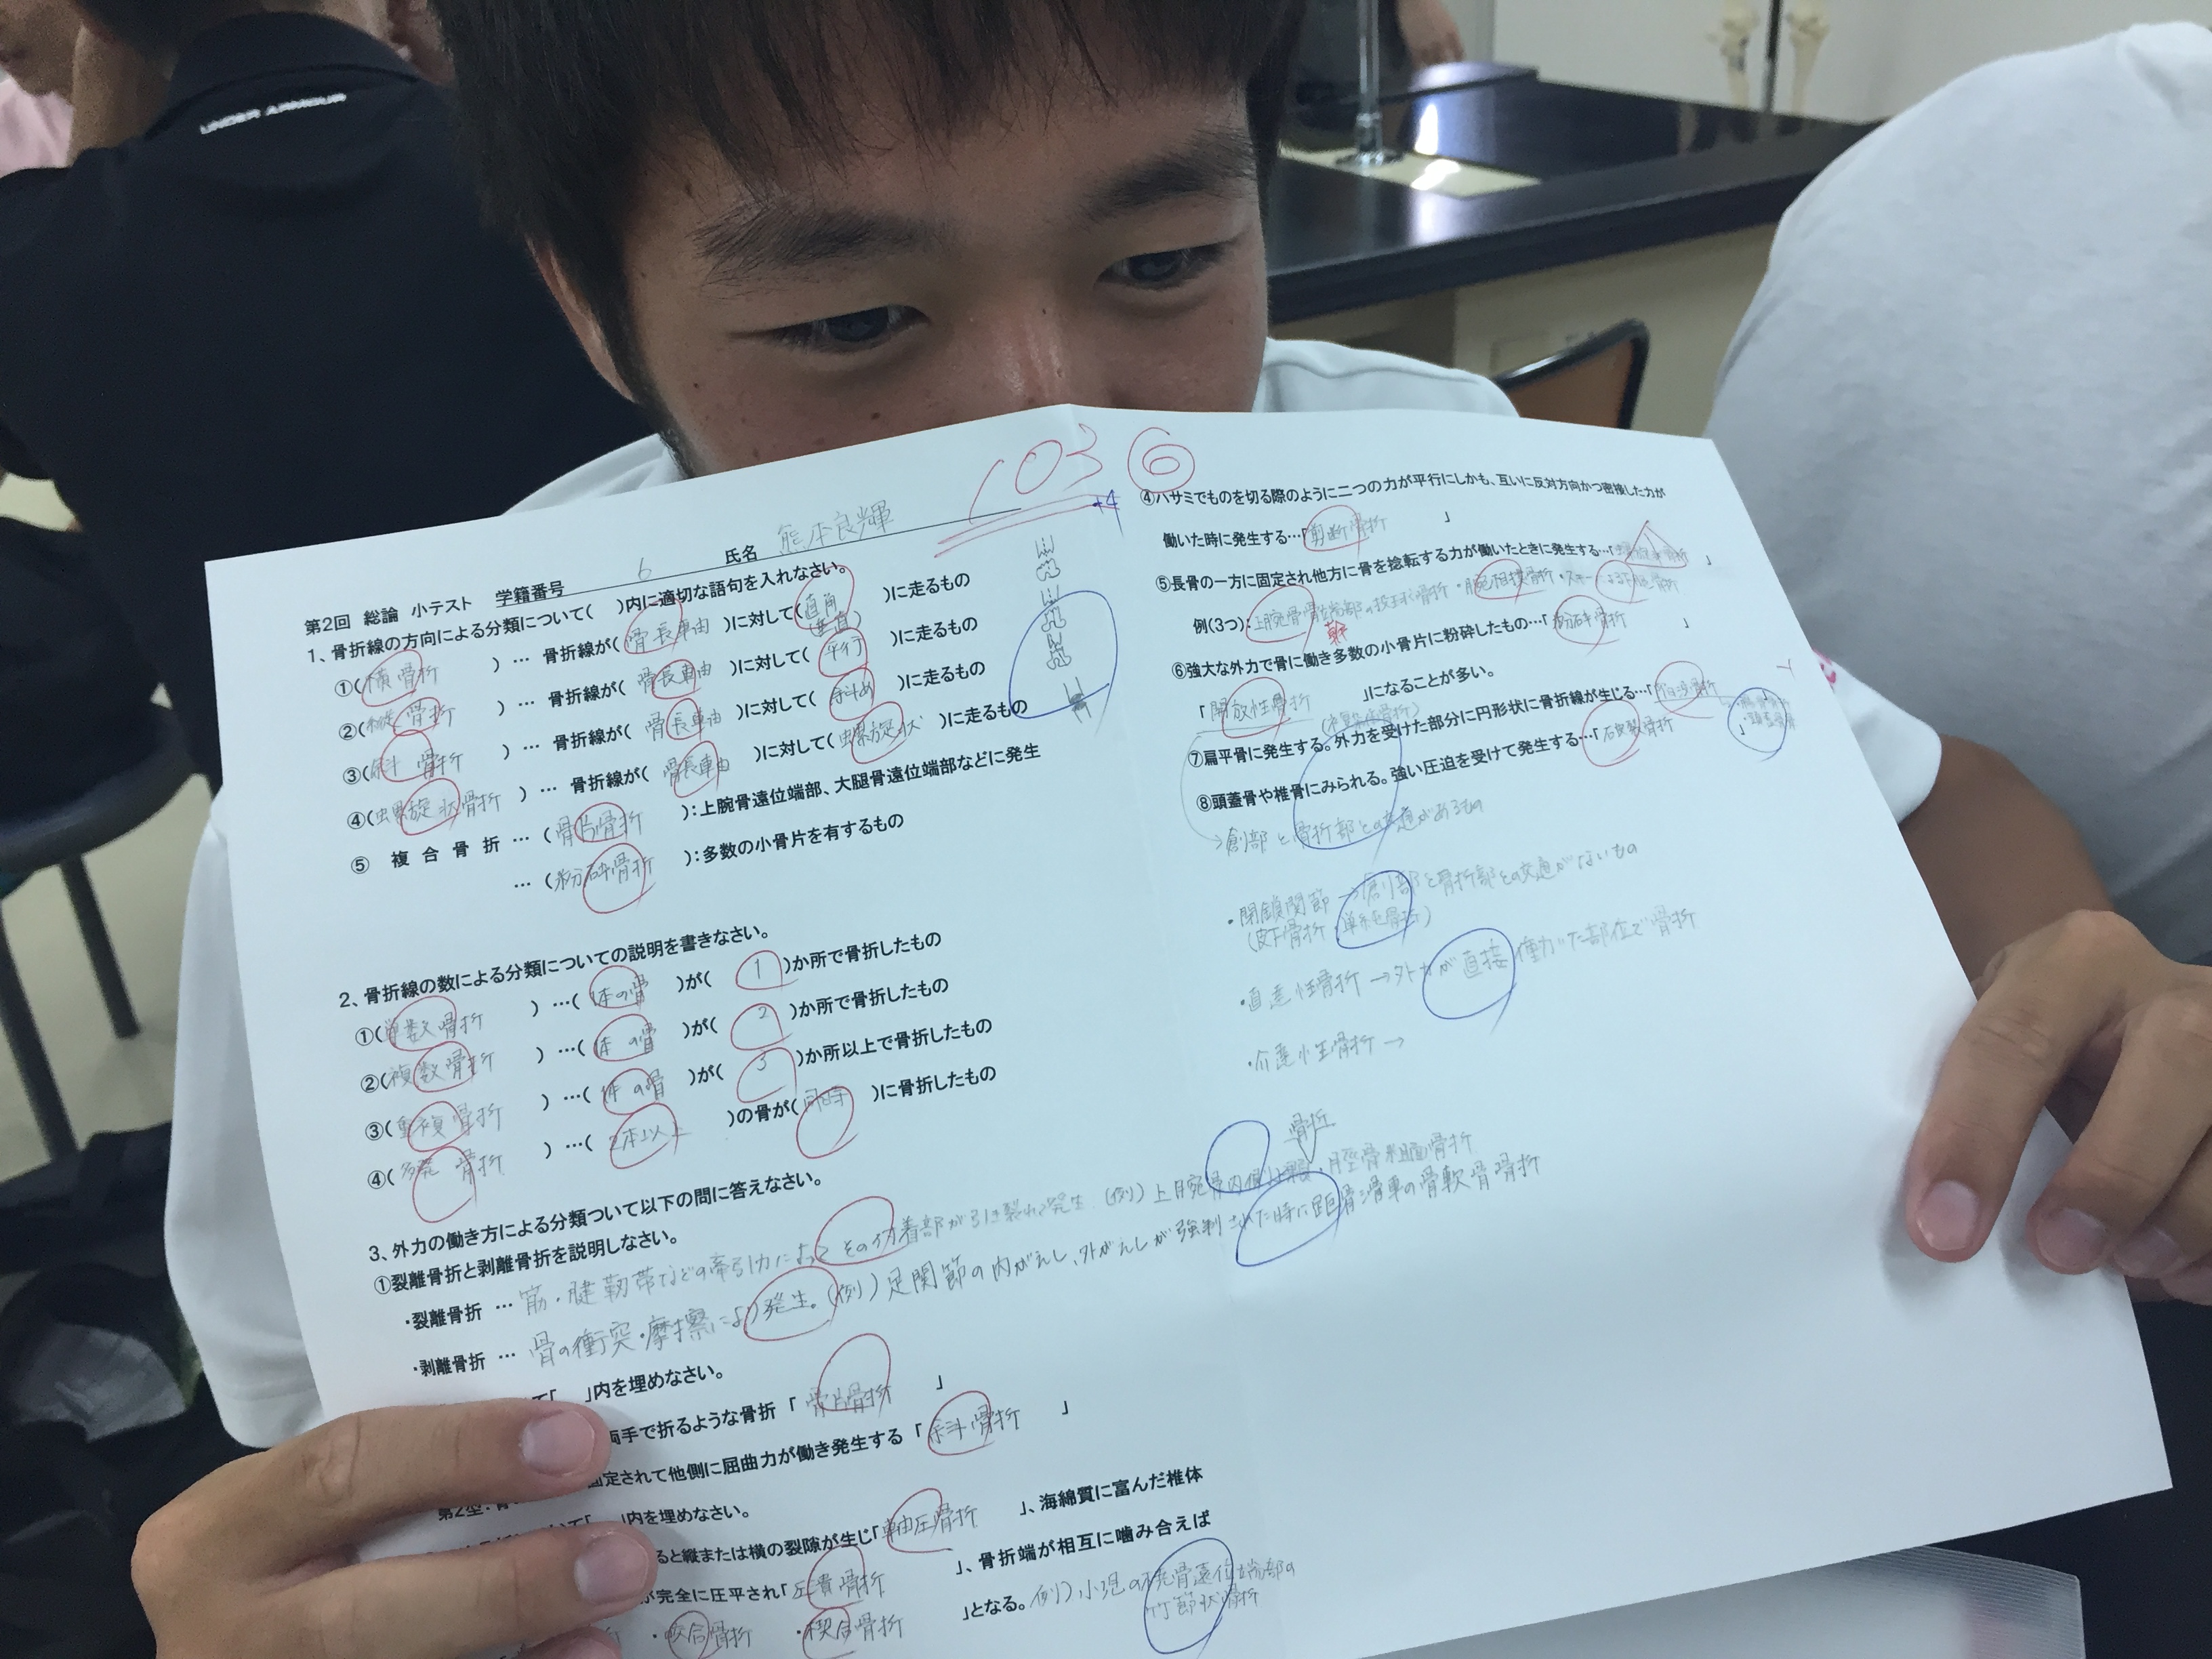 UNDER ARMOUR
103 ⑥
+4
第2回 総論 小テスト 学籍番号 6 氏名 熊本良輝
1、骨折線の方向による分類について( )内に適切な語句を入れなさい。
①(横骨折 ) … 骨折線が(骨長軸 )に対して(直角 (垂直) )に走るもの
②(縦骨折 ) … 骨折線が(骨長軸 )に対して(平行 )に走るもの
③(斜 骨折 ) … 骨折線が(骨長軸 )に対して(斜め )に走るもの
④(螺旋状骨折 ) … 骨折線が(骨長軸 )に対して(螺旋状 )に走るもの
⑤ 複合骨折 … (骨片骨折 ):上腕骨遠位端部、大腿骨遠位端部などに発生
… (粉砕骨折 ):多数の小骨片を有するもの
2、骨折線の数による分類についての説明を書きなさい。
①(単数骨折 ) …(1本の骨 )が( 1 )か所で骨折したもの
②(複数骨折 ) …(1本の骨 )が( 2 )か所で骨折したもの
③(重複骨折 ) …(1本の骨 )が( 3 )か所以上で骨折したもの
④(多発 骨折 ) …(2本以上 )の骨が(同時 )に骨折したもの
3、外力の働き方による分類ついて以下の問に答えなさい。
①裂離骨折と剥離骨折を説明しなさい。
・裂離骨折 … 筋・腱靭帯などの牽引力によってその付着部が引き裂れて発生.(例)上腕骨内側上顆・脛骨粗面骨折
骨折
・剥離骨折 … 骨の衝突・摩擦により発生。(例)足関節の内がえし、外がえしが強制された時に距骨滑車の骨軟骨骨折
て「 」内を埋めなさい。
両手で折るような骨折「骨片骨折 」
第2型:骨 固定されて他側に屈曲力が働き発生する「斜骨折 」
て「 」内を埋めなさい。
ると縦または横の裂隙が生じ「軸圧骨折 」、海綿質に富んだ椎体
が完全に圧平され「圧潰骨折 」、骨折端が相互に噛み合えば
・咬合骨折 ・楔合骨折 」となる。例)小児の橈骨遠位端部の
竹節状骨折
④ハサミでものを切る際のように二つの力が平行にしかも、互いに反対方向かつ密接した力が
働いた時に発生する…「剪断骨折 」
⑤長骨の一方に固定され他方に骨を捻転する力が働いたときに発生する…「螺旋状骨折 」
例(3つ):上腕骨骨端部の投球骨折・腕相撲骨折・スキーによる下腿骨折
幹
⑥強大な外力で骨に働き多数の小骨片に粉砕したもの…「粉砕骨折 」
「開放性骨折 」になることが多い。
⑦扁平骨に発生する。外力を受けた部分に円形状に骨折線が生じる…「陥没骨折 」
⑧頭蓋骨や椎骨にみられる。強い圧迫を受けて発生する…「石灰製骨折 」
→創部と骨折部との交通があるもの
・閉鎖関節→創部と骨折部との交通がないもの
(皮下骨折・単純骨折)
・直達性骨折→外力が直接働いた部位で骨折
・介達性骨折→